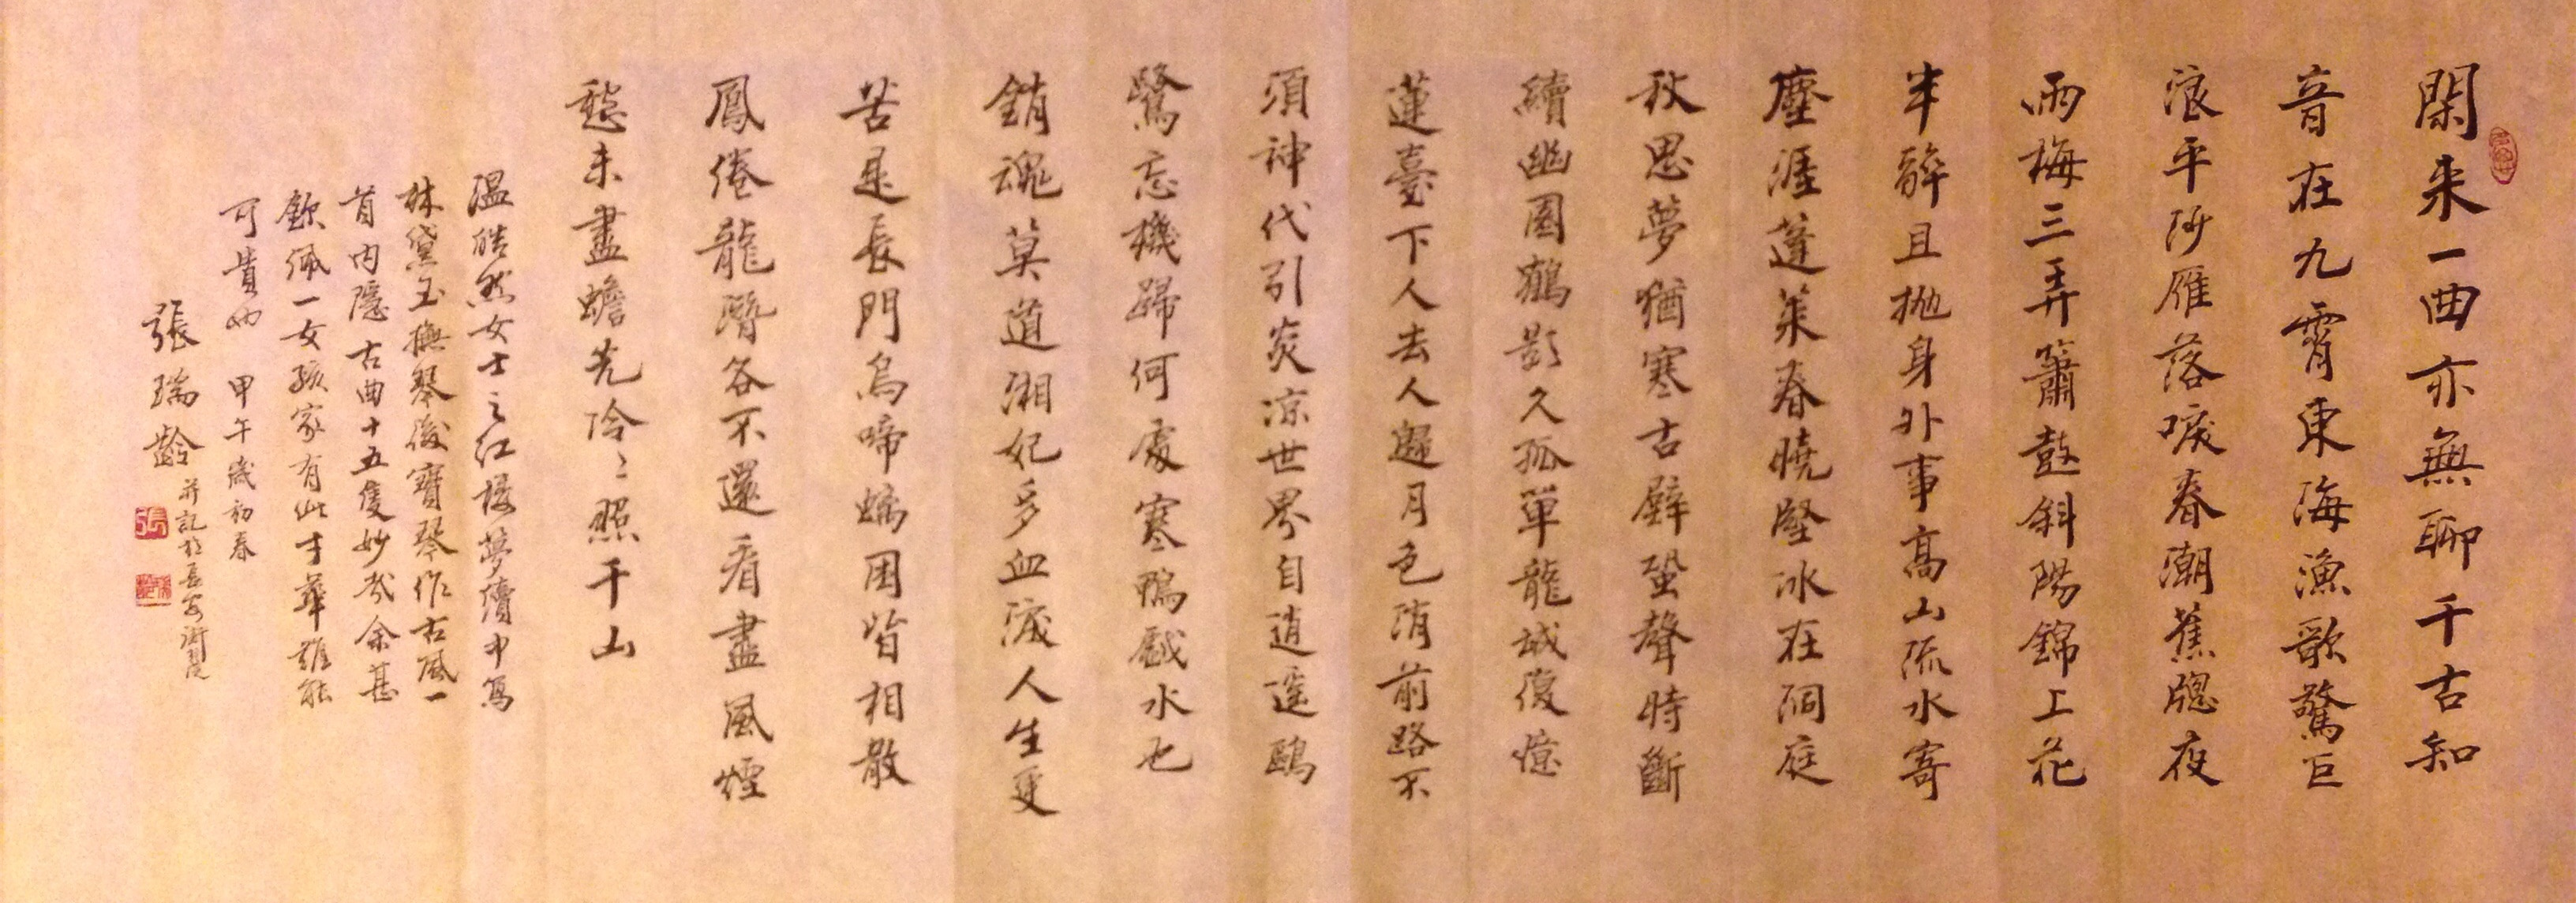 閑来一曲亦無聊千古知
音在九霄東海漁歌驚巨
浪平沙雁落唳春潮蕉牕夜
雨梅三弄簫鼓斜陽錦上花
半醉且抛身外事高山流水寄
塵涯蓬萊春曉堅冰在洞庭
秋思夢猶寒古壁蛩聲時斷
續幽園鶴影久孤單龍城復憶
蓮臺下人去人遐月色消前路不
須神代引炎凉世界自逍遥鷗
鷺忘機歸何處寒鴨戲水也
銷魂莫道湘妃多血淚人生更
苦是長門烏啼蛾困皆相散
鳳倦龍翳各不還看盡風煙
愁未盡蟾光冷冷照千山
温皓然女士之红楼夢續中寫
林黛玉撫琴後寶琴作古風一
首内隱古曲十五隻妙哉余甚
欽佩一女孩家有此才華難能
可貴也 甲午歲初春
張瑞齡 并記於長安
張